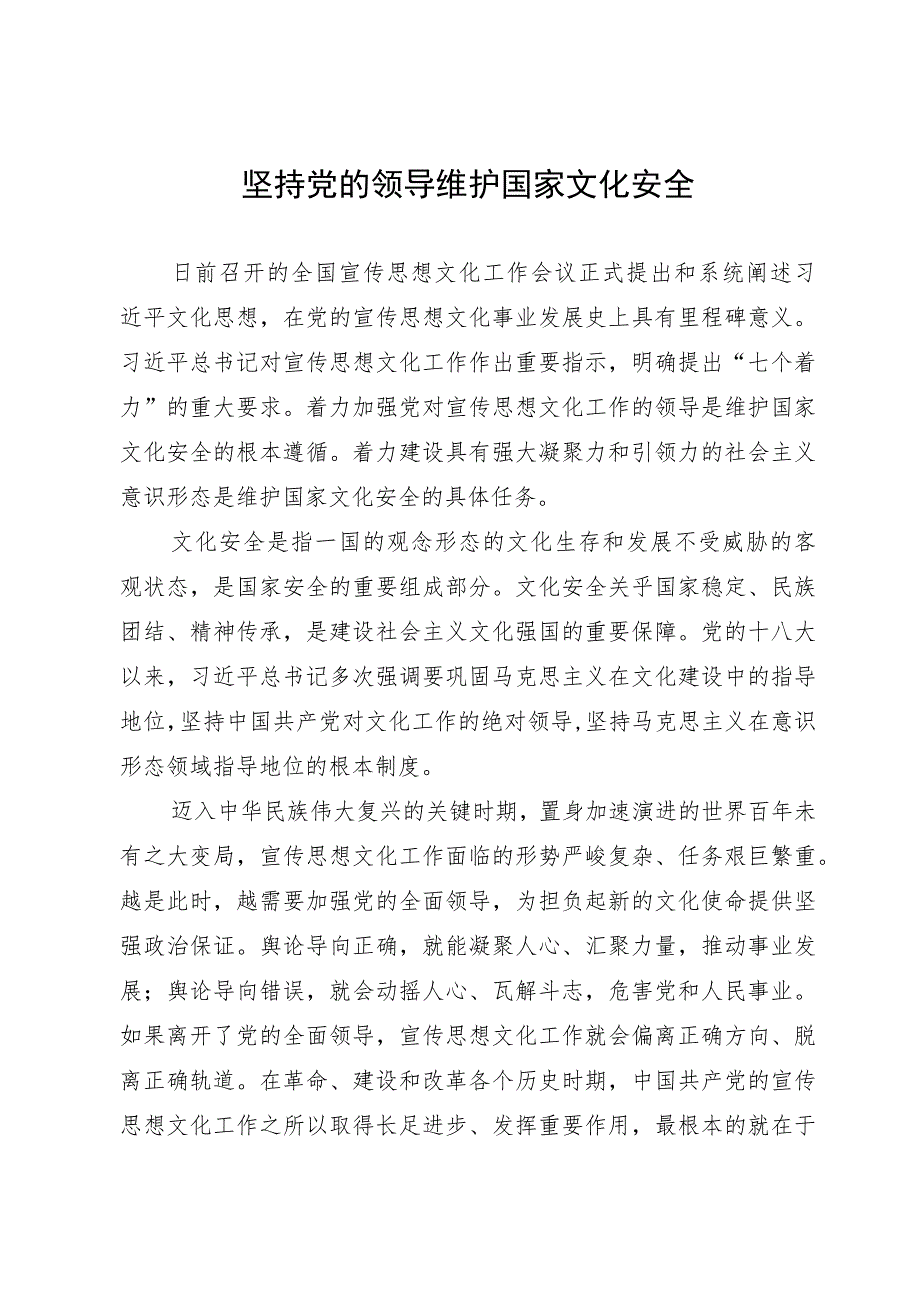 坚持党的领导维护国家文化安全
日前召开的全国宣传思想文化工作会议正式提出和系统阐述习
近平文化思想，在党的宣传思想文化事业发展史上具有里程碑意义。
习近平总书记对宣传思想文化工作作出重要指示，明确提出“七个着
力”的重大要求。着力加强党对宣传思想文化工作的领导是维护国家
文化安全的根本遵循。着力建设具有强大凝聚力和引领力的社会主义
意识形态是维护国家文化安全的具体任务。
文化安全是指一国的观念形态的文化生存和发展不受威胁的客
观状态，是国家安全的重要组成部分。文化安全关乎国家稳定、民族
团结、精神传承，是建设社会主义文化强国的重要保障。党的十八大
以来，习近平总书记多次强调要巩固马克思主义在文化建设中的指导
地位,坚持中国共产党对文化工作的绝对领导,坚持马克思主义在意识
形态领域指导地位的根本制度。
迈入中华民族伟大复兴的关键时期，置身加速演进的世界百年未
有之大变局，宣传思想文化工作面临的形势严峻复杂、任务艰巨繁重。
越是此时，越需要加强党的全面领导，为担负起新的文化使命提供坚
强政治保证。舆论导向正确，就能凝聚人心、汇聚力量，推动事业发
展；舆论导向错误，就会动摇人心、瓦解斗志，危害党和人民事业。
如果离开了党的全面领导，宣传思想文化工作就会偏离正确方向、脱
离正确轨道。在革命、建设和改革各个历史时期，中国共产党的宣传
思想文化工作之所以取得长足进步、发挥重要作用，最根本的就在于